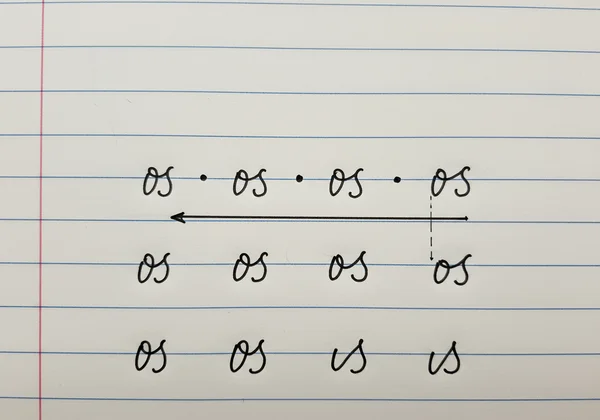 os · os · os · os
os os os os
os os us us